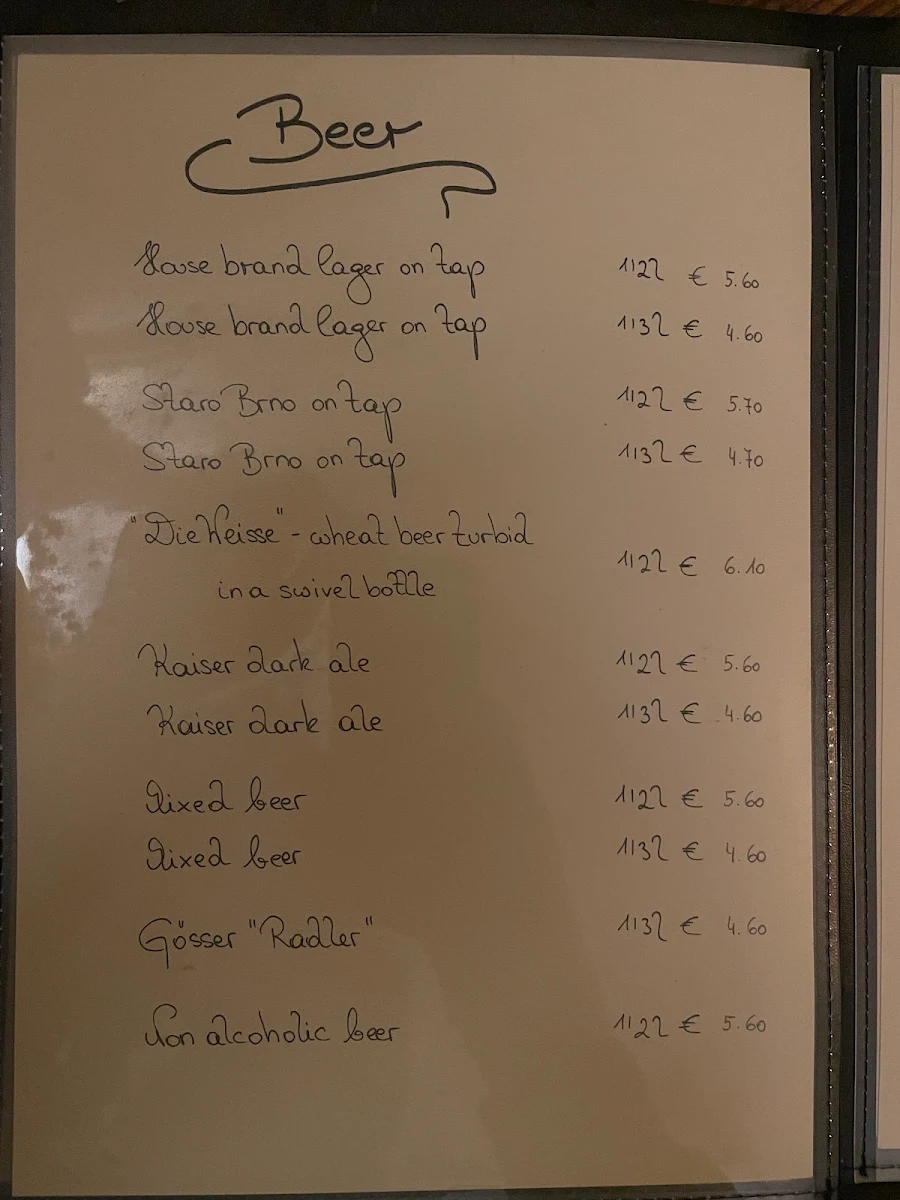 Beer
House brand lager on tap 1/2l € 5.60
House brand lager on tap 1/3l € 4.60
Staro Brno on tap 1/2l € 5.70
Staro Brno on tap 1/3l € 4.70
"Die Weisse" - wheat beer turbid
in a swivel bottle 1/2l € 6.10
Kaiser dark ale 1/2l € 5.60
Kaiser dark ale 1/3l € 4.60
Mixed beer 1/2l € 5.60
Mixed beer 1/3l € 4.60
Gösser "Radler" 1/3l € 4.60
Non alcoholic beer 1/2l € 5.60